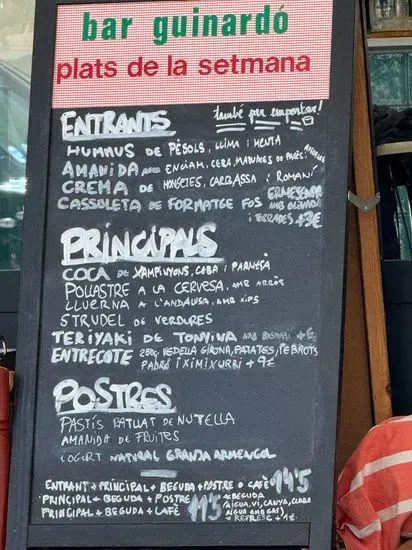 bar guinardó
plats de la setmana
ENTRANTS també per emportar!
HUMMUS DE PÈSOLS, LLIMA I MENTA
AMANIDA AMB ENCIAM, CEBA, MADUIXES, DO PARÉS I
CREMA DE MONGETES, CARBASSA I ROMANÍ
CASSOLETA DE FORMATGE FOS
AMB OLIVADA
I TORRADES +3€
PRINCIPALS
COCA DE XAMPINYONS, CEBA I PARMESÀ
POLLASTRE A LA CERVESA, AMB ARRÒS
LLUERNA A L'ANDALUSA, AMB XIPS
STRUDEL DE VERDURES
TERIYAKI DE TONYINA AMB BASMATI +6
ENTRECOTE 250g, VEDELLA GIRONA, PATATES, PEBROTS
PADRÓ I XIMIXURRI +9€
POSTRES
PASTÍS BATUAT DE NUTELLA
AMANIDA DE FRUITES
IOGURT NATURAL GRANJA ARMENGOL
ENTRANT + PRINCIPAL + BEGUDA + POSTRE O CAFÈ 14'5
PRINCIPAL + BEGUDA + POSTRE 11'5
PRINCIPAL + BEGUDA + CAFÈ
* BEGUDA
(AIGUA, VI, CANYA, CLARA
AIGUA AMB GAS)
- REFRESC + 1€